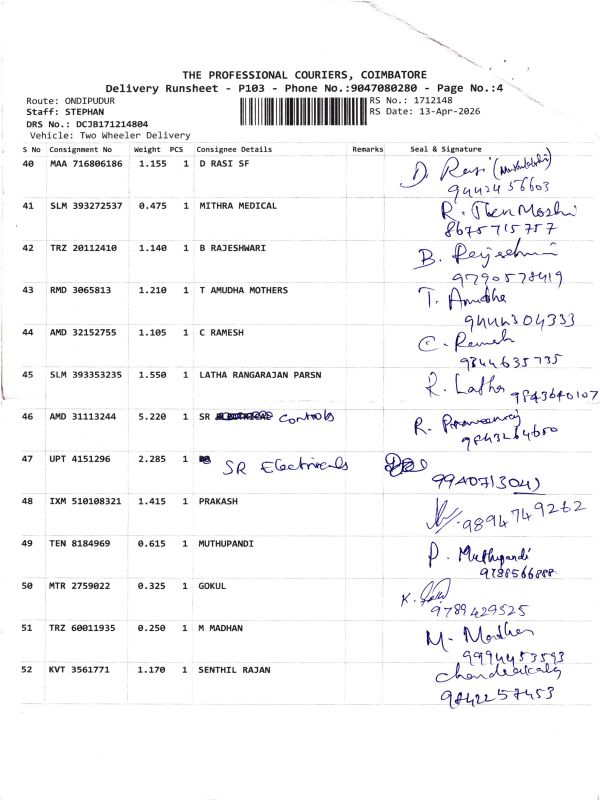 THE PROFESSIONAL COURIERS, COIMBATORE
Delivery Runsheet - P103 - Phone No.:9047080280 - Page No.:4
Route: ONDIPUDUR RS No.: 1712148
Staff: STEPHAN RS Date: 13-Apr-2026
DRS No.: DCJB171214804
Vehicle: Two Wheeler Delivery
S No Consignment No Weight PCS Consignee Details Remarks Seal & Signature
40 MAA 716806186 1.155 1 D RASI SF D. Rasi
9442456603
41 SLM 393272537 0.475 1 MITHRA MEDICAL R. Then Mozhi
8675715757
42 TRZ 20112410 1.140 1 B RAJESHWARI B. Rajeshwari
9790578419
43 RMD 3065813 1.210 1 T AMUDHA MOTHERS T. Amudha
9444304333
44 AMD 32152755 1.105 1 C RAMESH C. Ramesh
9344635735
45 SLM 393353235 1.550 1 LATHA RANGARAJAN PARSN R. Latha 9843640107
46 AMD 31113244 5.220 1 SR Controls R. Praveenraj
9843264650
47 UPT 4151296 2.285 1 SR Electricals
9940713041
48 IXM 510108321 1.415 1 PRAKASH 9894749262
49 TEN 8184969 0.615 1 MUTHUPANDI P. Muthupandi
9788566888
50 MTR 2759022 0.325 1 GOKUL K.
9789429525
51 TRZ 60011935 0.250 1 M MADHAN M. Madhan
9994453593
52 KVT 3561771 1.170 1 SENTHIL RAJAN Chandrakala
9842257453